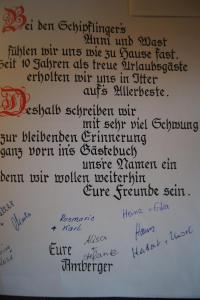 Bei den Schipflinger's
Anni und Wast
fühlen wir uns wie zu Hause fast.
Seit 10 Jahren als treue Urlaubsgäste
erholten wir uns in Itter
auf's Allerbeste.
Deshalb schreiben wir
mit sehr viel Schwung
zur bleibenden Erinnerung
ganz vorn in's Gästebuch
uns're Namen ein
denn wir wollen weiterhin
Eure Freunde sein.
Rosmarie
+ Karl
Hans
Eure
Amberger